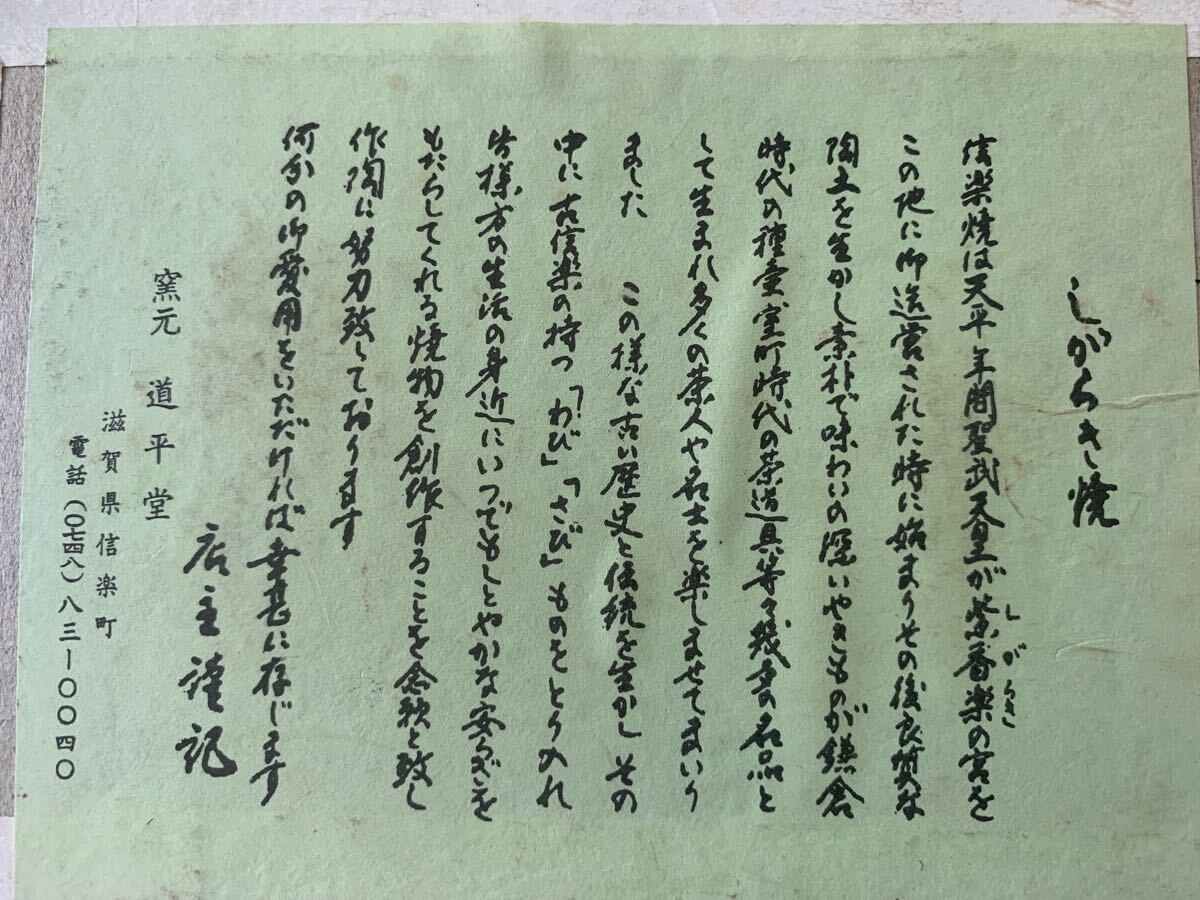 しがらき焼
信楽焼は天平年間聖武天皇が紫香楽の宮を
しがらき
この地に御造営された時に始まりその後良質な
陶土を生かし素朴で味わいの深いやきものが鎌倉
時代の種壷室町時代の茶道具等々幾多の名品と
して生まれ多くの茶人や名士を楽しませてまいり
ました　この様な古い歴史と伝統を生かしその
中に古信楽の持つ「わび」「さび」ものをとり入れ
皆様方の生活の身近にいつでもしとやかな安らぎを
もたらしてくれる焼物を創作することを念願と致し
作陶に努力致しております
何分の御愛用をいただければ幸甚に存じます
店主謹記
窯元　道平堂
滋賀県信楽町
電話（〇七四八）八三ー〇〇四〇